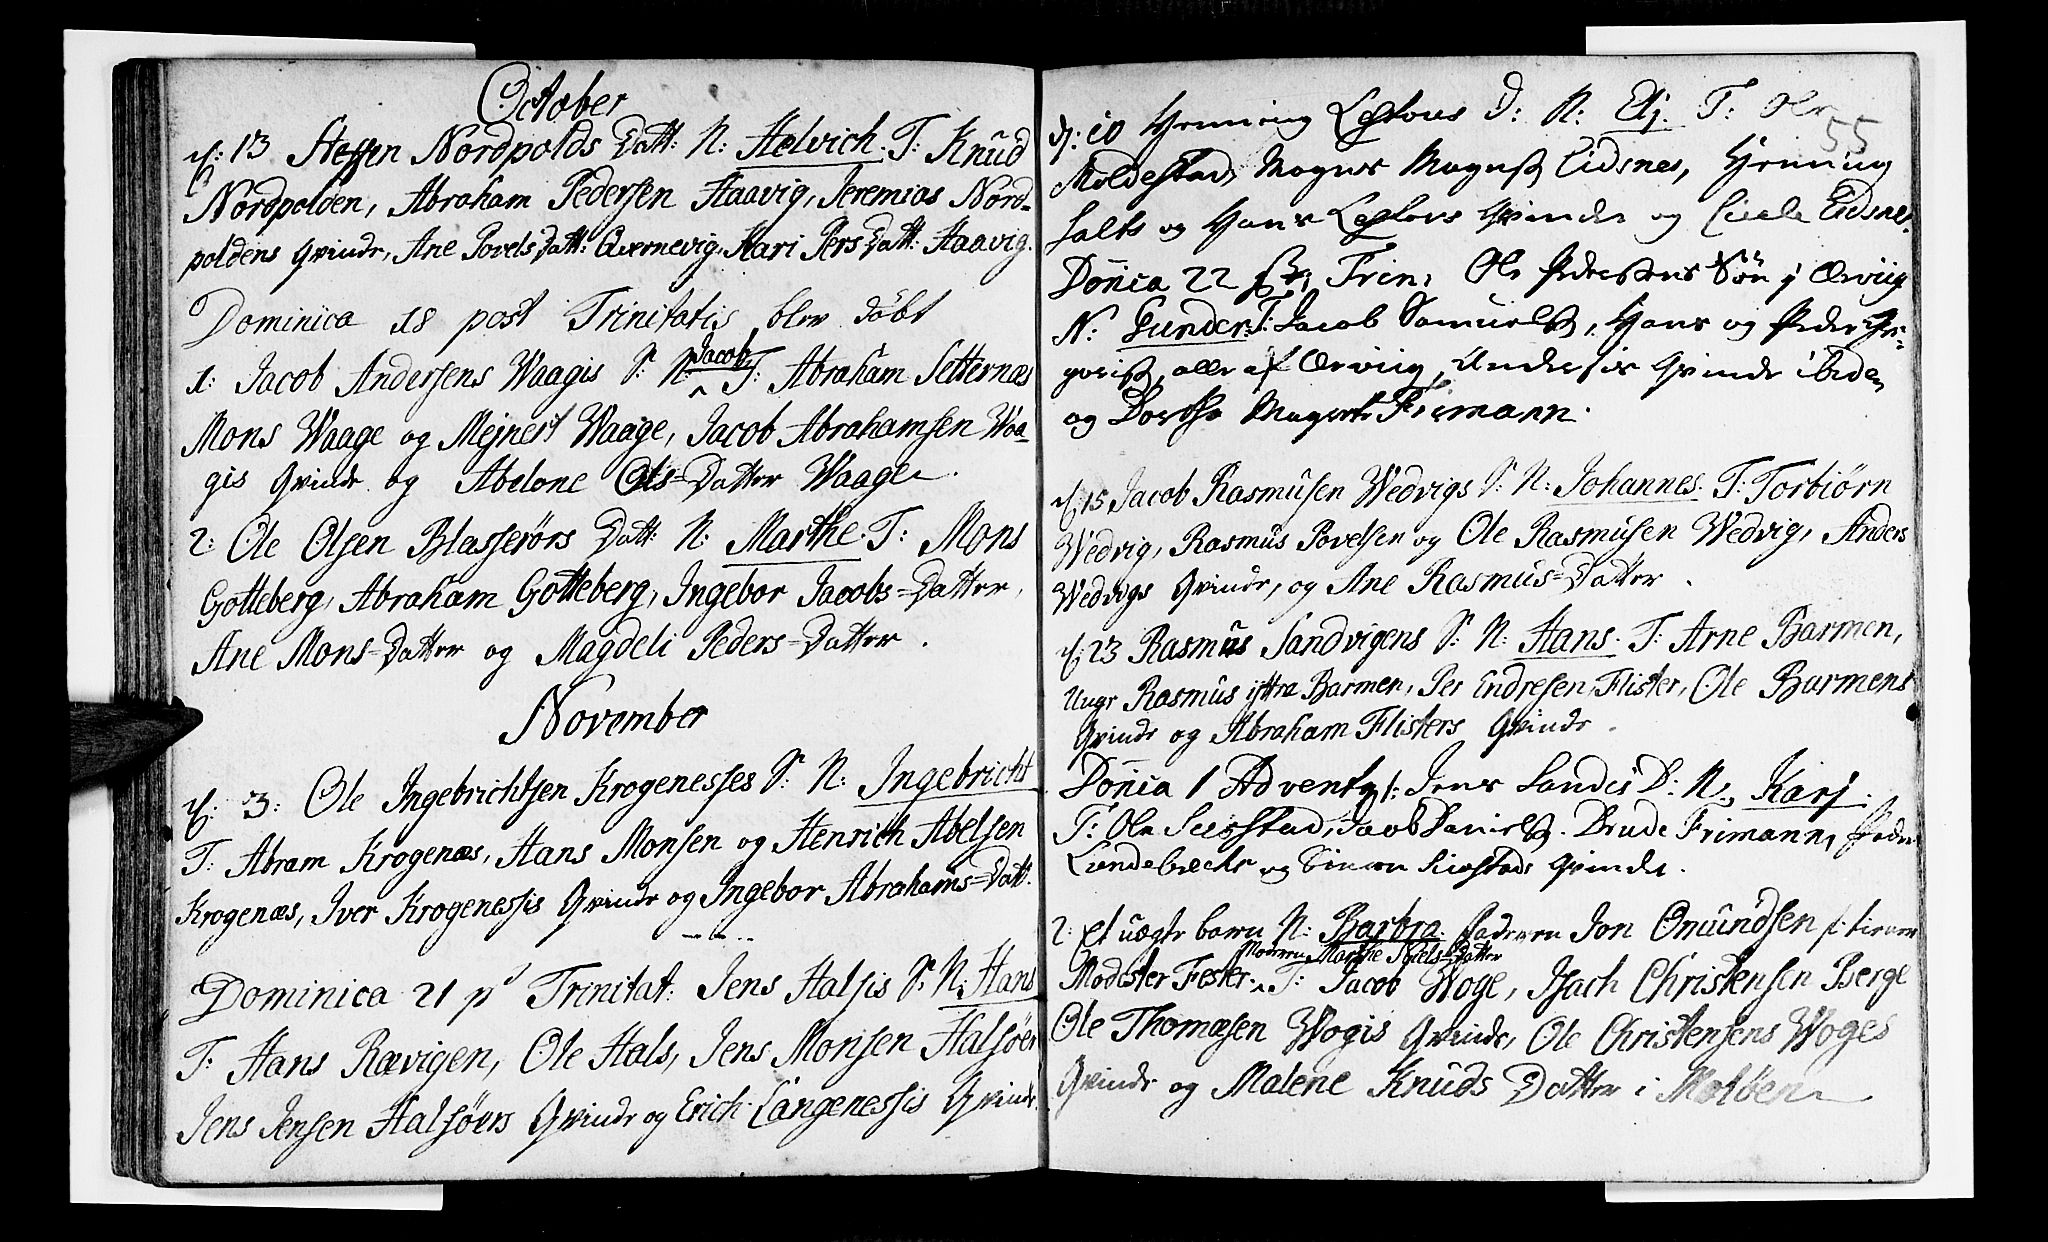 October
d: 13 Steffen Nordpolds Datt: N: Helvich. T: Knud
Nordpolden, Abraham Pedersen Haavig, Jeremias Nord-
poldens Qvinde, Ane Povels Datt: Qvernevig, Kari Pers Datt: Haavig.
Dominica 18 post Trinitatis blev döbt
1: Jacob Andersens Waagis S: N: Jacob T: Abraham Setternæs
Mons Waage og Mejnert Waage, Jacob Abrahamsen Waa-
gis Qvinde og Abelone Ols=Datter Waage.
2: Ole Olsen Blasserörs Datt: N: Marthe. T: Mons
Gotteberg, Abraham Gotteberg, Ingebor Jacobs=Datter,
Ane Mons=Datter og Magdeli Peders=Datter.
November
d: 3: Ole Ingebrichtsen Krogenesses S: N: Ingebricht
T: Abram Krogenæs, Hans Monsen og Henrich Abelsen
Krogenæs, Iver Krogenessis Qvinde og Ingebor Abrahams=Datt.
Dominica 21 p Trinitat: Jens Halsis S: N: Hans
T: Hans Rævigen, Ole Hals, Jens Monsen Halsöer
Jens Jensen Halsöers Qvinde og Erich Langenessis Qvinde.
55
d: 10 Henning D: N: Elj. T: Ole
Moldestad, Mogens Eidsnes, Henning
og Hans Qvinde og Eidsnes.
Donica 22 Trin: Ole Sön j Ærviig
N: Gunder. T: Jacob Samuels, Hans og Peder Gre-
alle af Ærviig, Qvinde ibidem
og Dorthe Frimann.
d: 15 Jacob Rasmusen Wedvigs S: N: Johannes. T: Torbiörn
Wedvig, Rasmus Povelsen og Ole Rasmusen Wedvig, Anders
Wedvigs Qvinde, og Ane Rasmus=Datter.
d: 23 Rasmus Sandvigens S: N: Hans. T: Arne Barmen,
Unge Rasmus yttre Barmen, Per Endresen Flister, Ole Barmens
Qvinde og Abraham Flisters Qvinde.
Donica 1 Advent 1: Jens D: N: Karj.
T: Ole Jacob Daniels. Frimann, Peder
og Simon Qvinde.
2: et uægte barn N: Barbra. faderen Jon Omundsen
Moderen Marthe Niels=Datter
T: Jacob Woge, Isach Christensen Berge
Ole Thomæsen Wogis Qvinde, Ole Christensens Woges
Qvinde og Malene Knuds Datter i